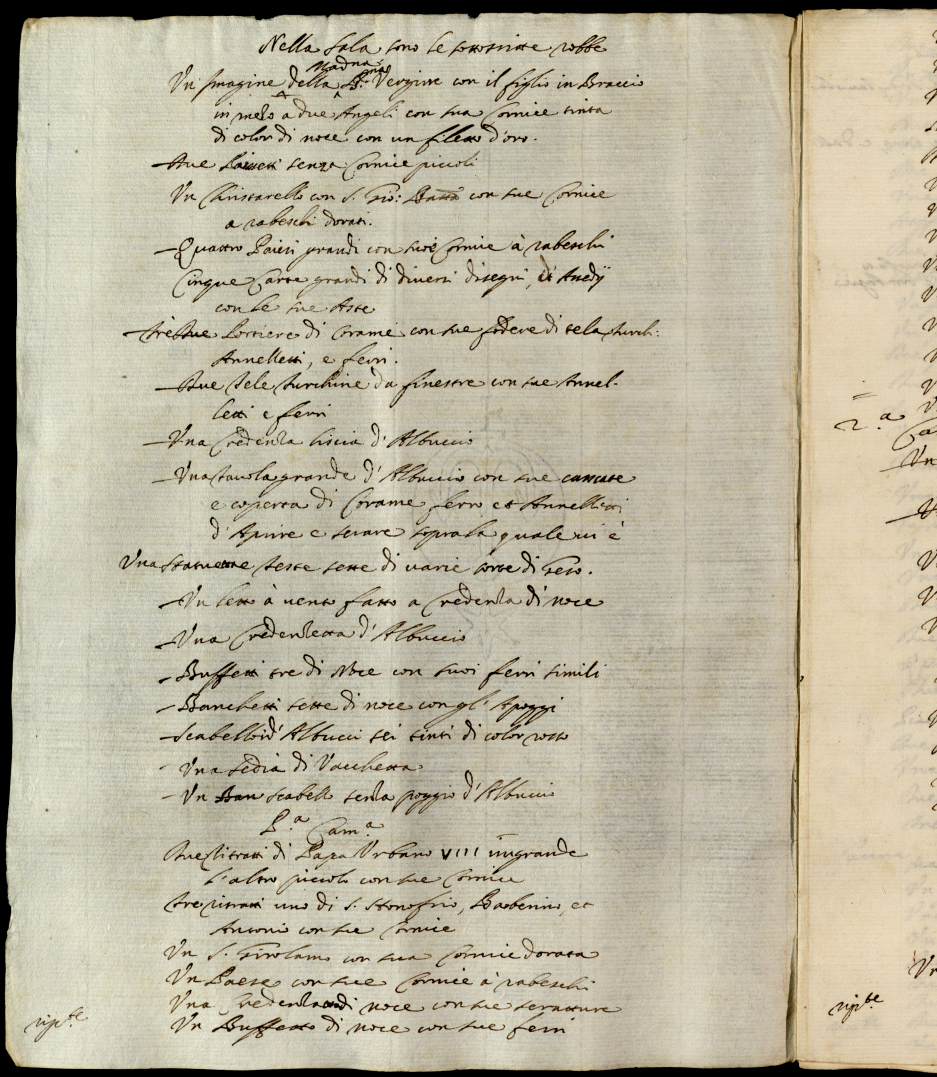 Nella Sala sono le sottoscritte robbe
Madna
Un Imagine della B.ma Vergine con il figlio in Braccio
in mezo a due Angeli con sua Cornice tinta
di color di noce con un filetto d'oro.
– Due Paesetti senza Cornice piccoli
Un Christarello con S. Gio: Batta con sue Cornice
a rabeschi dorati.
– Quattro Paiesi grandi con sue Cornice à rabeschi
Cinque Carte grandi di diversi disegni,
con le sue Aste
– trè Portiere di Corame con sue fodere di tela turch:
Annelletti, e ferri.
– Due Tele turchine da finestre con sue Annel-
letti e ferri
– Una Credenza liscia d'Albuccio
– Una tavola grande d'Albuccio con sue
e coperta di Corame ferro et Annelletti
d'Aprire e serare sopra la quale vi è
Una Statuette teste sette di varie sorte di Geso.
– Un letto à vento fatto a Credenza di noce
– Una Credenzetta d'Albuccio
– Buffetti tre di Noce con suoi ferri simili
– Banchetti sette di noce con gl'Apoggi
– Scabelloi d'Albucci sei tinti di color rosso
– Una sedia di Vacchetta
– Un Scabello senza poggio d'Albuccio
P.a Cam.a
Due Ritratti di Papa Urbano VIII un grande
l'altro piccolo con sue Cornice
tre ritratti uno di S. Honofrio, Barberino, et
Antonio con sue Cornice
Un S. Girolamo con sua Cornice dorata
Un Paese con sue Cornice à rabeschi
Una Credenza di noce con sue serrature
Un Buffetto di noce con sue ferri
2.a
Un